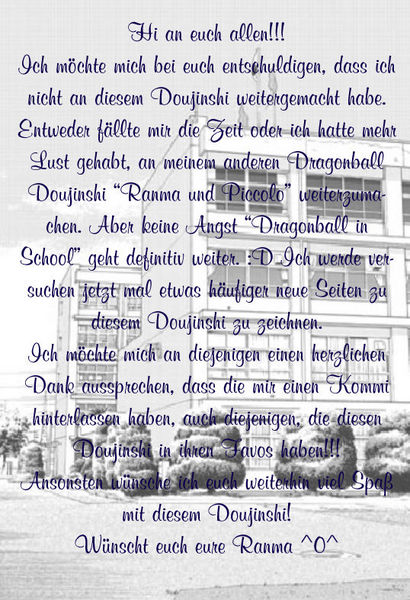 Hi an euch allen!!!
Ich möchte mich bei euch entschuldigen, dass ich
nicht an diesem Doujinshi weitergemacht habe.
Entweder fällte mir die Zeit oder ich hatte mehr
Lust gehabt, an meinem anderen Dragonball
Doujinshi “Ranma und Piccolo” weiterzuma-
chen. Aber keine Angst “Dragonball in
School” geht definitiv weiter. :D Ich werde ver-
suchen jetzt mal etwas häufiger neue Seiten zu
diesem Doujinshi zu zeichnen.
Ich möchte mich an diejenigen einen herzlichen
Dank aussprechen, dass die mir einen Kommi
hinterlassen haben, auch diejenigen, die diesen
Doujinshi in ihren Favos haben!!!
Ansonsten wünsche ich euch weiterhin viel Spaß
mit diesem Doujinshi!
Wünscht euch eure Ranma ^0^